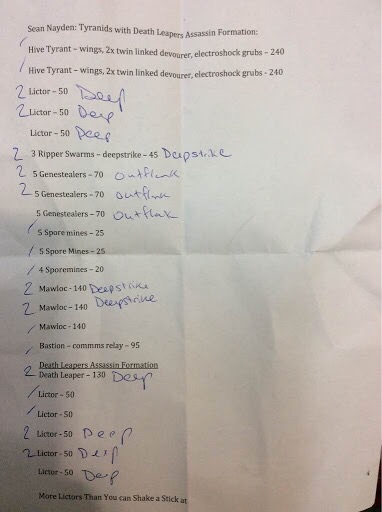 Sean Nayden: Tyranids with Death Leapers Assassin Formation:
/ Hive Tyrant – wings, 2x twin linked devourer, electroshock grubs – 240
/ Hive Tyrant – wings, 2x twin linked devourer, electroshock grubs - 240
2 Lictor – 50 Deep
2 Lictor – 50 Deep
Lictor – 50 Deep
2 3 Ripper Swarms – deepstrike – 45 Deepstrike
2 5 Genestealers – 70 outflank
2 5 Genestealers – 70 outflank
5 Genestealers – 70 outflank
/ 5 Spore mines – 25
/ 5 Spore Mines – 25
/ 4 Sporemines – 20
2 Mawloc - 140 Deepstrike
2 Mawloc – 140 Deepstrike
/ Mawloc - 140
/ Bastion – commms relay – 95
Death Leapers Assassin Formation
2 Death Leaper – 130 Deep
/ Lictor – 50
/ Lictor - 50
2 Lictor – 50 Deep
2 Lictor – 50 Deep
Lictor – 50 Deep
More Lictors Than You can Shake a Stick at